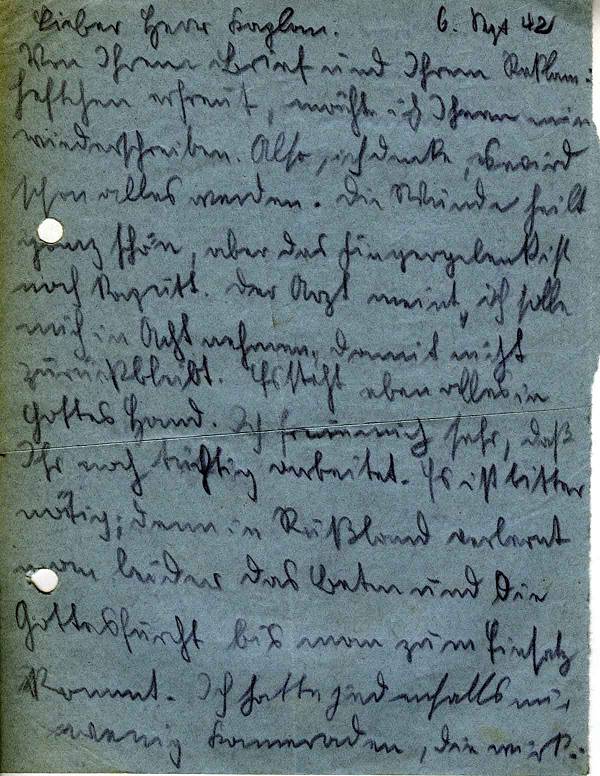 Lieber Herr Kaplan. 6. Sept 42
Von Ihrem Brief und Ihrem Reklam-
heftchen erfreut, möchte ich Ihnen nun
wiederschreiben. Also, ich denke, es wird
schon alles werden. Die Wunde heilt
ganz schön, aber das Fingergelenk ist
noch kaputt. Der Arzt meint, ich solle
mich in Acht nehmen, damit nicht
zurückbleibt. Es steht eben alles in
Gottes Hand. Ich freue mich sehr, daß
Ihr noch tüchtig arbeitet. Es ist bitter
nötig; denn in Rußland verlernt
man leider das Beten und die
Gottesfurcht bis man zum Einsatz
kommt. Ich hatte jedenfalls nur
wenig Kameraden, die wirk-